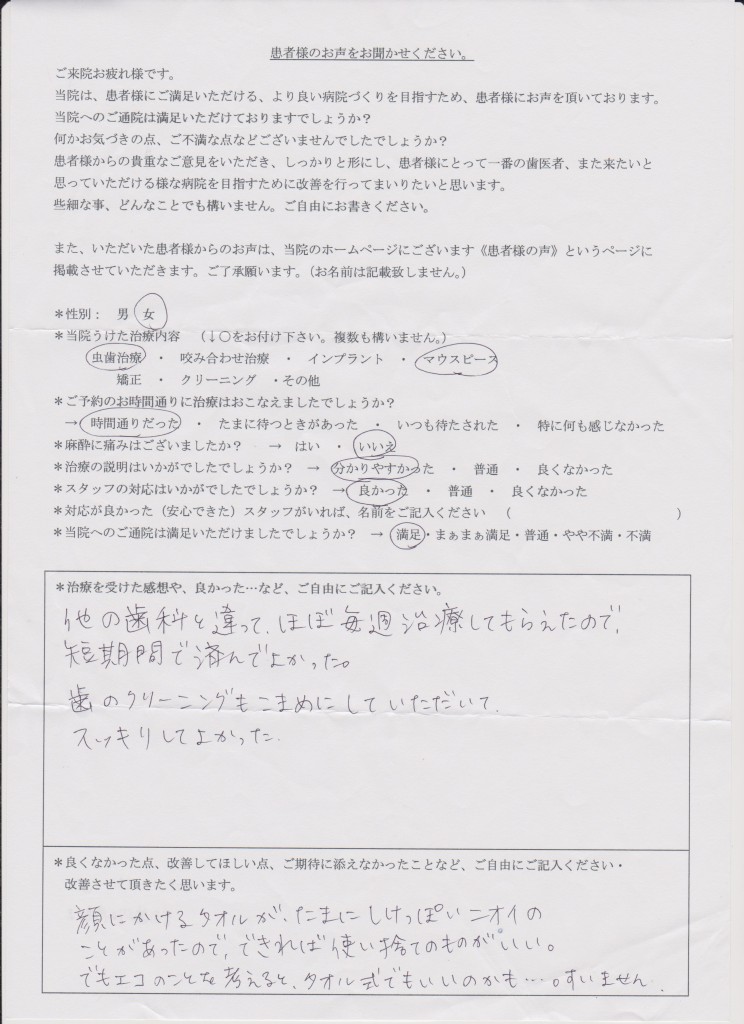 患者様のお声をお聞かせください。
ご来院お疲れ様です。
当院は、患者様にご満足いただける、より良い病院づくりを目指すため、患者様にお声を頂いております。
当院へのご通院は満足いただけておりますでしょうか？
何かお気づきの点、ご不満な点などございませんでしたでしょうか？
患者様からの貴重なご意見をいただき、しっかりと形にし、患者様にとって一番の歯医者、また来たいと
思っていただける様な病院を目指すために改善を行ってまいりたいと思います。
些細な事、どんなことでも構いません。ご自由にお書きください。
また、いただいた患者様からのお声は、当院のホームページにございます《患者様の声》というページに
掲載させていただきます。ご了承願います。（お名前は記載致しません。）
＊性別： 男 女
＊当院うけた治療内容 （↓○をお付け下さい。複数も構いません。）
虫歯治療 ・ 咬み合わせ治療 ・ インプラント ・ マウスピース
矯正 ・ クリーニング ・その他
＊ご予約のお時間通りに治療はおこなえましたでしょうか？
→ 時間通りだった ・ たまに待つときがあった ・ いつも待たされた ・ 特に何も感じなかった
＊麻酔に痛みはございましたか？ → はい ・ いいえ
＊治療の説明はいかがでしたでしょうか？ → 分かりやすかった ・ 普通 ・ 良くなかった
＊スタッフの対応はいかがでしたでしょうか？ → 良かった ・ 普通 ・ 良くなかった
＊対応が良かった（安心できた）スタッフがいれば、名前をご記入ください （ ）
＊当院へのご通院は満足いただけましたでしょうか？ → 満足・まぁまぁ満足・普通・やや不満・不満
＊治療を受けた感想や、良かった…など、ご自由にご記入ください。
他の歯科と違って、ほぼ毎週治療してもらえたので、
短期間で済んでよかった。
歯のクリーニングもこまめにしていただいて、
スッキリしてよかった.
＊良くなかった点、改善してほしい点、ご期待に添えなかったことなど、ご自由にご記入ください・
改善させて頂きたく思います。
顔にかけるタオルが、たまにしけっぽいニオイの
ことがあったので、できれば使い捨てのものがいい。
でもエコのことを考えると、タオル式でもいいのかも…。すいません.